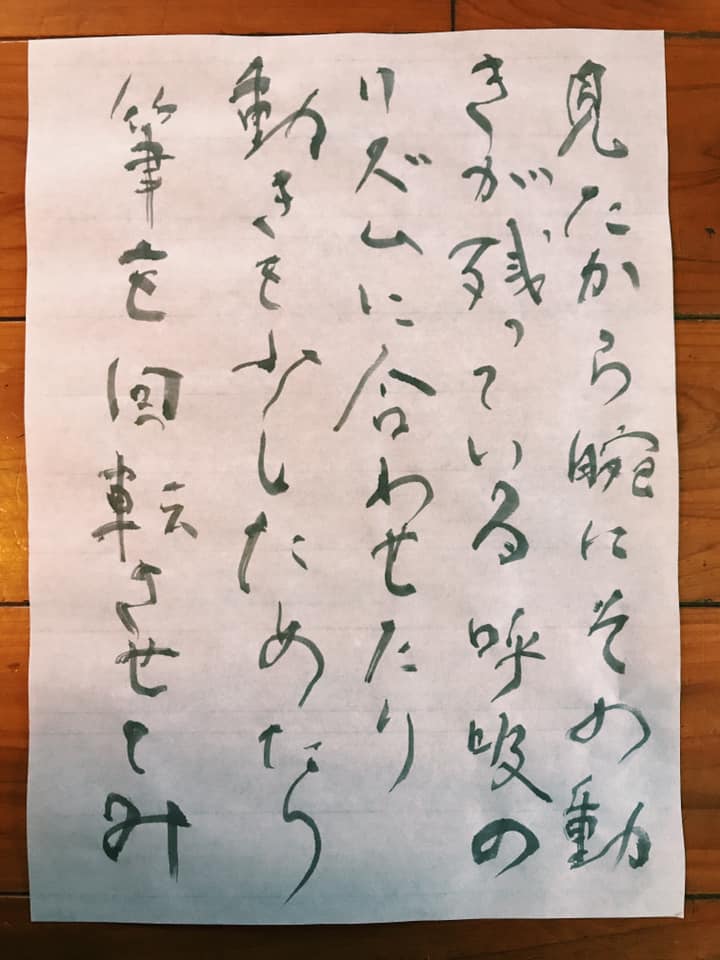 見たから腕にその動
きが残っている呼吸の
リズムに合わせたり
動きを少しためたり
筆を回転させてみ